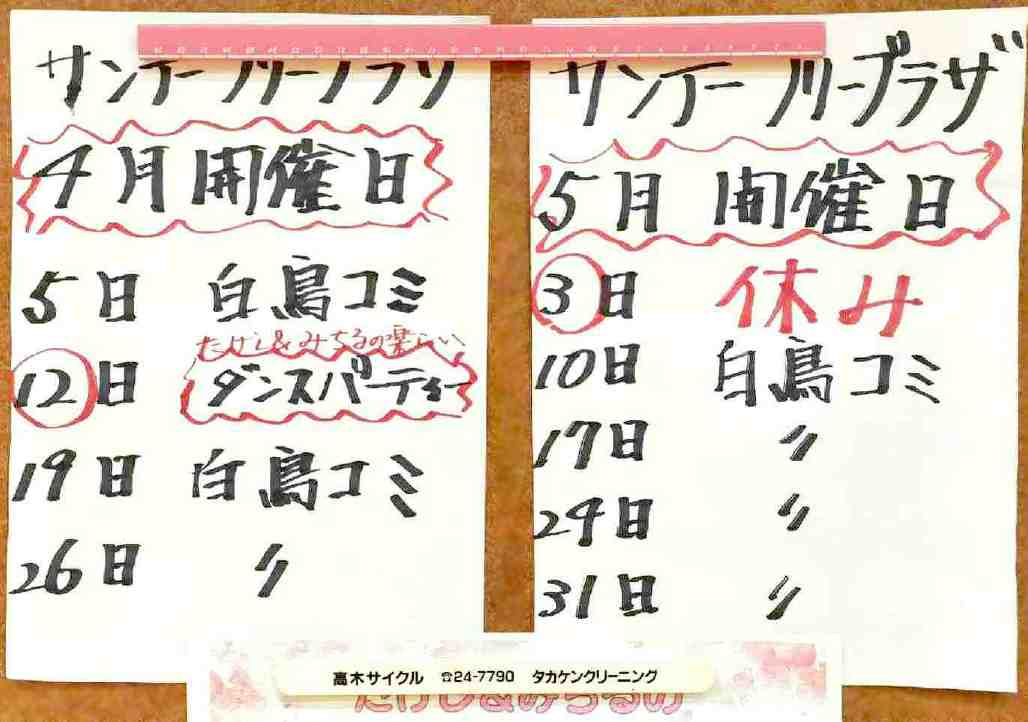 サンデーフリープラザ
4月開催日
5日 白鳥コミ
たけし&みちるの楽しい
12日 ダンスパーティー
19日 白鳥コミ
26日 〃
サンデーフリープラザ
5月開催日
3日 休み
10日 白鳥コミ
17日 〃
24日 〃
31日 〃
高木サイクル ☎24-7790 タカケンクリーニング
たけし&みちるの